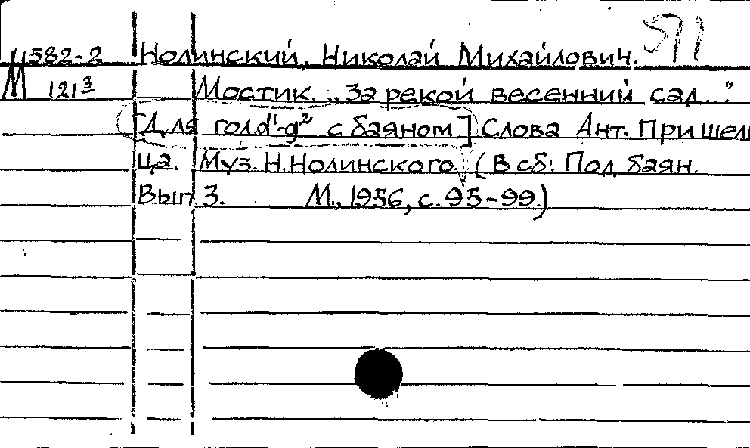 591
М582-2 Нолинский, Николай Михайлович.
М 121³ Мостик. „За рекой весенний сад..."
[Для гол d¹-g² с баяном] Слова Ант. Пришель
ца. Муз. Н. Нолинского. (В сб: Под баян.
Вып 3. М., 1956, с. 95-99.)